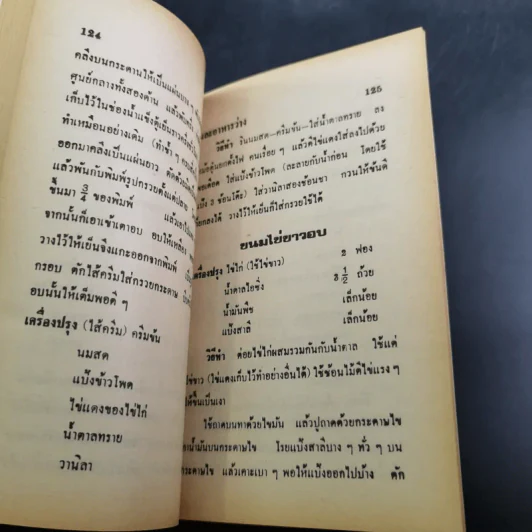 124
คลึงบนกระดานให้เป็นแผ่นยาว
ศูนย์กลางทั้งสองด้าน แล้วพับ
เก็บไว้ในช่องน้ำแข็งตู้เย็น
ทำเหมือนอย่างเดิม (ทำซ้ำ ๆ
ออกมาคลึงเป็นแผ่นยาว ตัดด้วย
แล้วพันกับพิมพ์รูปกรวยตั้งแต่ปลาย
ขึ้นมา 3/4 ของพิมพ์ แล้วเอา
จากนั้นก็เอาเข้าเตาอบ อบให้เหลือง
วางไว้ให้เย็นจึงแกะออกจากพิมพ์
กรอบ ตักไส้ครีมใส่กรวยกระดาษ
อบนั้นให้เต็มพอดี ๆ
เครื่องปรุง (ไส้ครีม) ครีมข้น
นมสด
แป้งข้าวโพด
ไข่แดงของไข่ไก่
น้ำตาลทราย
วานิลา
125
และอาหารว่าง
วิธีทำ รินนมสด-ครีมข้น-ใส่น้ำตาลทราย ลง
ตุ๋นยกตั้งไฟ คนเรื่อย ๆ แล้วตีไข่แดงใส่ลงไปด้วย
พอเดือด ใส่แป้งข้าวโพด (ละลายกับน้ำก่อน โดยใช้
แป้ง 3 ช้อนโต๊ะ) ใส่วานิลาสองช้อนชา กวนให้ข้นดี
ยกลงได้ วางไว้ให้เย็นก็ใส่กรวยใช้ได้
ขนมไข่ขาวอบ
เครื่องปรุง ไข่ไก่ (ใช้ไข่ขาว) 2 ฟอง
น้ำตาลไอซิ่ง 3 1/2 ถ้วย
น้ำมันพืช เล็กน้อย
แป้งสาลี เล็กน้อย
วิธีทำ ต่อยไข่ไก่ผสมรวมกันกับน้ำตาล ใช้แต่
ไข่ขาว (ไข่แดงเก็บไว้ทำอย่างอื่นได้) ใช้ช้อนไม้ตีไข่แรง ๆ
ขึ้นเป็นเงา
ใช้ถาดบนทาด้วยไขมัน แล้วปูถาดด้วยกระดาษไข
น้ำมันบนกระดาษไข โรยแป้งสาลีบาง ๆ ทั่ว ๆ บน
กระดาษไข แล้วเคาะเบา ๆ พอให้แป้งออกไปบ้าง ตัก